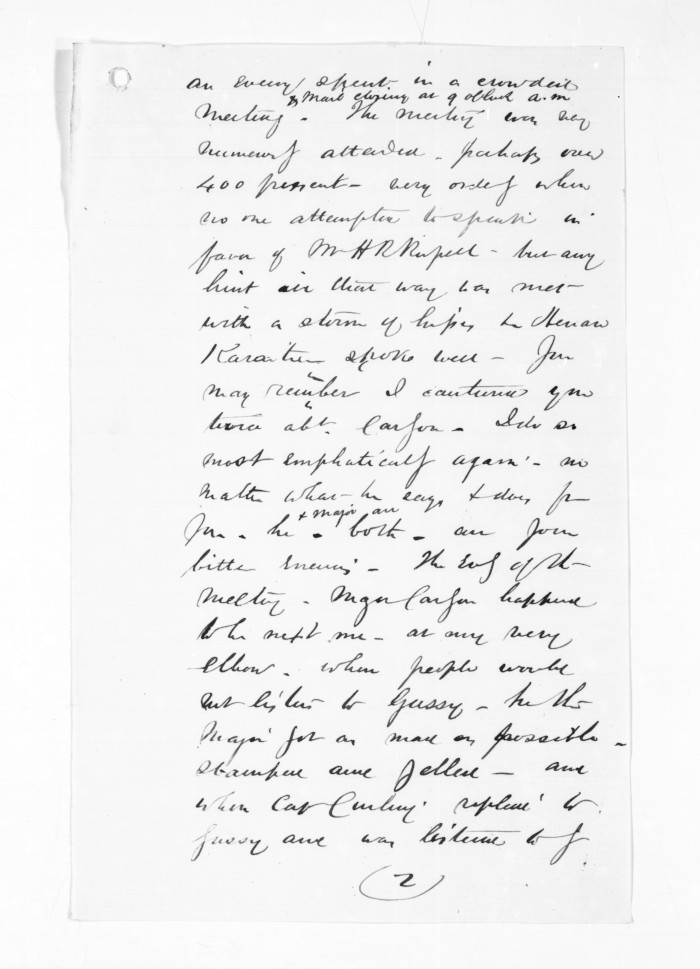 an evening spent in a crowded
& mail closing at 9 oclock a.m
meeting - The meeting was very
numerously attended - perhaps over
400 present - very orderly when
no one attempted to speak in
favor of Mr H R Russell - but any
hint in that way was met
with a storm of hisses
Karaitiana spoke well - You
may remember I cautioned you
twice abt. Carlyon - I do so
most emphatically again - no
matter what he says & does for
you - he & major are both - are your
bitter enemies - The Evg of the
meeting - Major Carlyon happened
to be next me - at my very
elbow - when people would
not listen to Gussy - he the
Major got as mad as possible -
stamped and yelled - and
when Cap Curling replied to
Gussy and was listened to
(2)